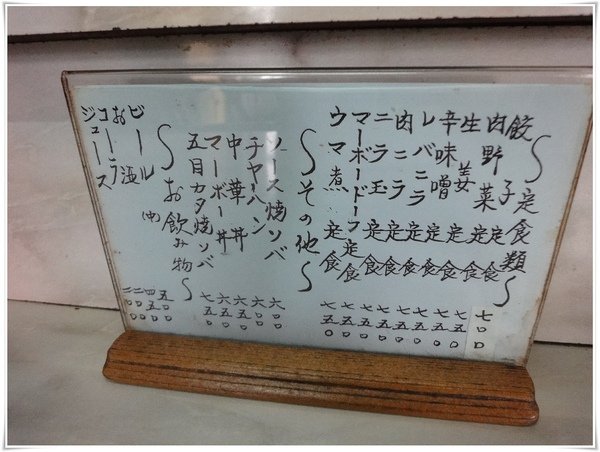 〜定食類〜
餃子定食 七〇〇
肉野菜定食 七五〇
生姜定食 七五〇
辛味噌定食 七五〇
レバニラ定食 七五〇
肉ニラ定食 七五〇
ニラ玉定食 七五〇
マーボードーフ定食 七五〇
ウマ煮定食 七五〇
〜その他〜
ソース焼ソバ 六〇〇
チャーハン 六〇〇
中華丼 六五〇
マーボー丼 六五〇
五目カタ焼ソバ 七五〇
〜お飲み物〜
ビール 五〇〇
お酒 四五〇
コーラ 二〇〇
ジュース 二〇〇